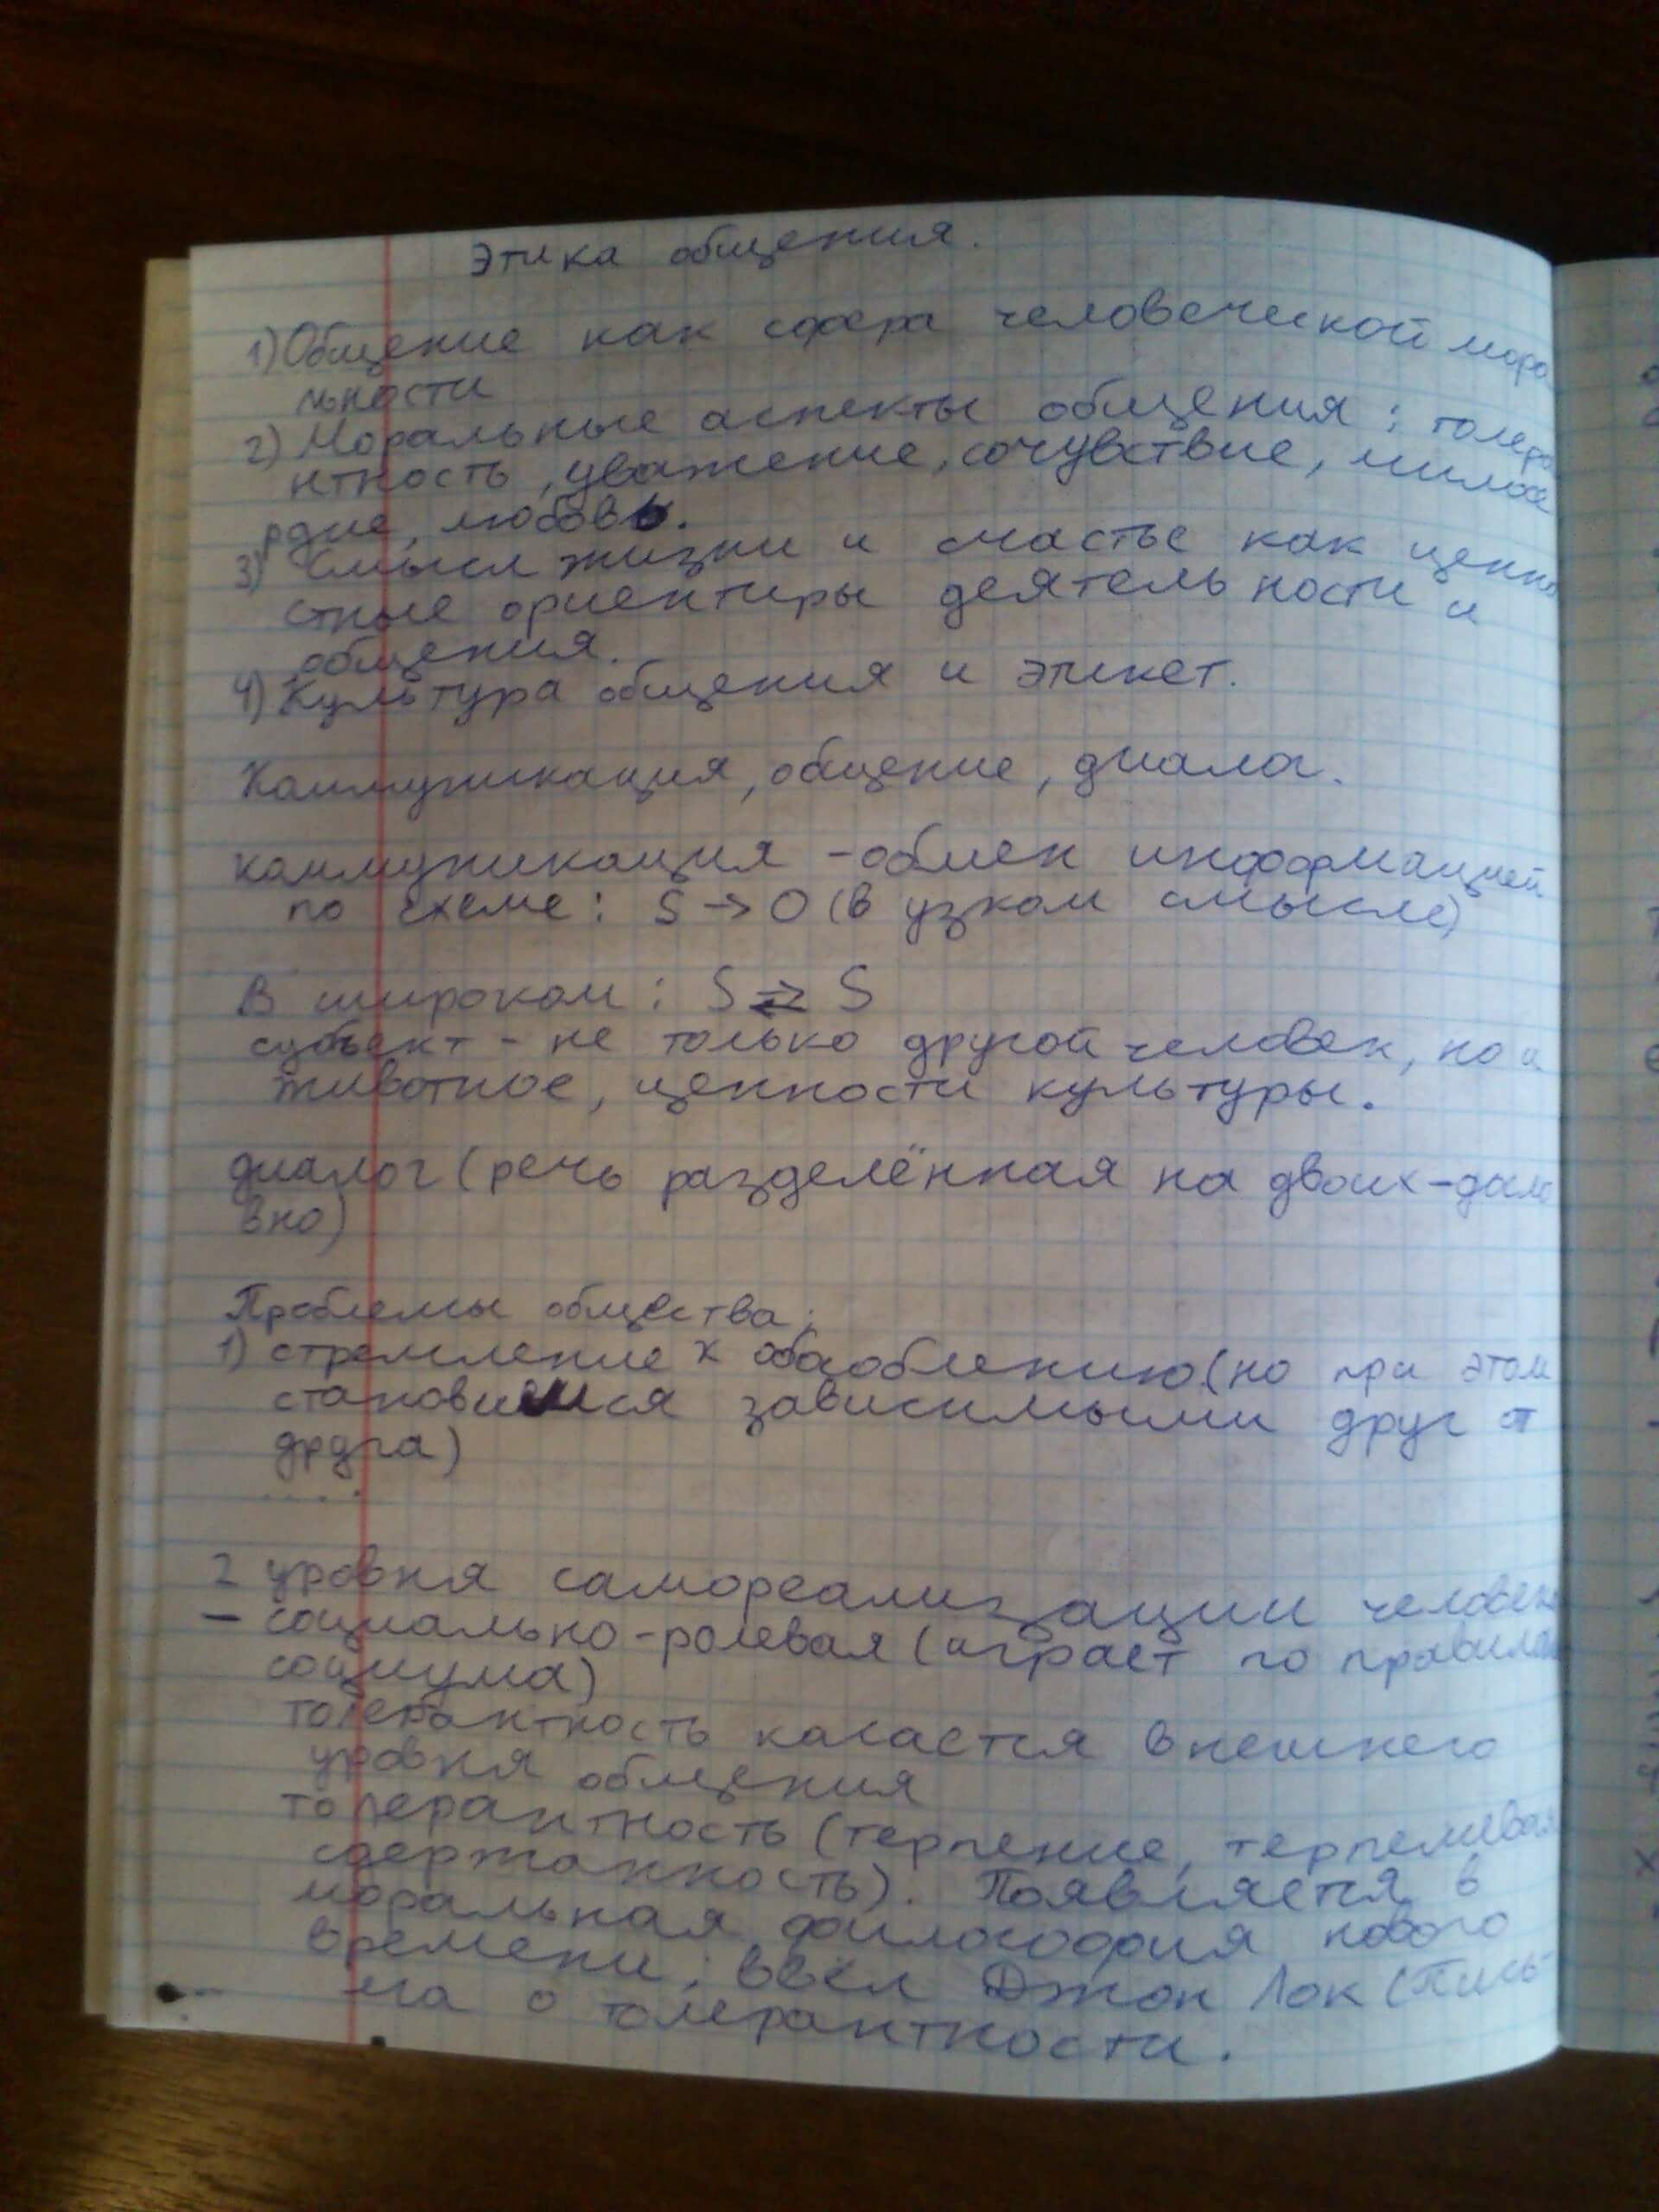 Этика общения.
1) Общение как сфера человеческой мора
льности
2) Моральные аспекты общения: толера
нтность, уважение, сочувствие, милосе
рдие, любовь.
3) Смысл жизни и счастье как ценно
стные ориентиры деятельности и
общения.
4) Культура общения и этикет.
Коммуникация, общение, диалог.
коммуникация - обмен информацией
по схеме: S → O (в узком смысле)
В широком: S ⇄ S
субъект - не только другой человек, но и
животное, ценности культуры.
диалог (речь разделённая на двоих - досло
вно)
Проблемы общества:
1) стремление к обособлению (но при этом
становимся зависимыми друг от
друга)
....
2 уровня самореализации человека
- социально-ролевая (играет по правилам
социума)
толерантность касается внешнего
уровня общения
толерантность (терпение, терпеливая
сдержанность). Появляется в
моральная философия нового
времени; ввёл Джон Лок (Пись-
ма о толерантности.